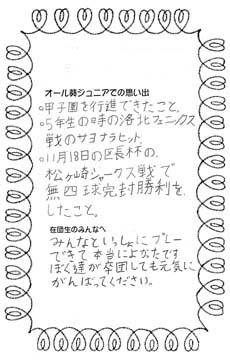 オール葵ジュニアでの思い出
○甲子園を行進できたこと。
○5年生の時の洛北フェニックス
戦のサヨナラヒット
○11月18日の区長杯の、
松ヶ崎ジャークス戦で
無四球完封勝利を
したこと。
在団生のみんなへ
みんなといっしょにプレー
できて本当によかたです
ぼく達が卒団しても元気に
がんばってください。